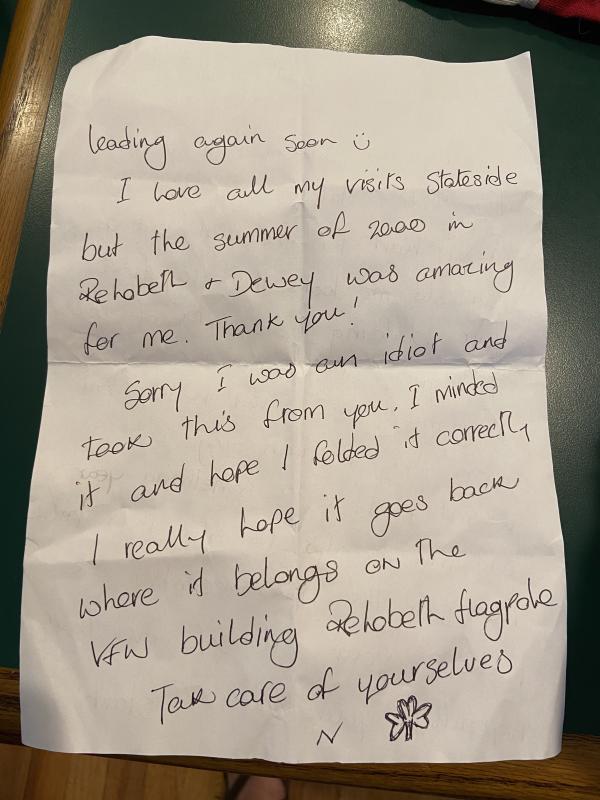 leading again soon
I love all my visits Stateside
but the summer of 2000 in
Rehobeth + Dewey was amazing
for me. Thank you!
Sorry I was an idiot and
took this from you. I minded
it and hope I folded it correctly
I really hope it goes back
where it belongs on the
VFW building Rehobeth flagpole
Take care of yourselves
N